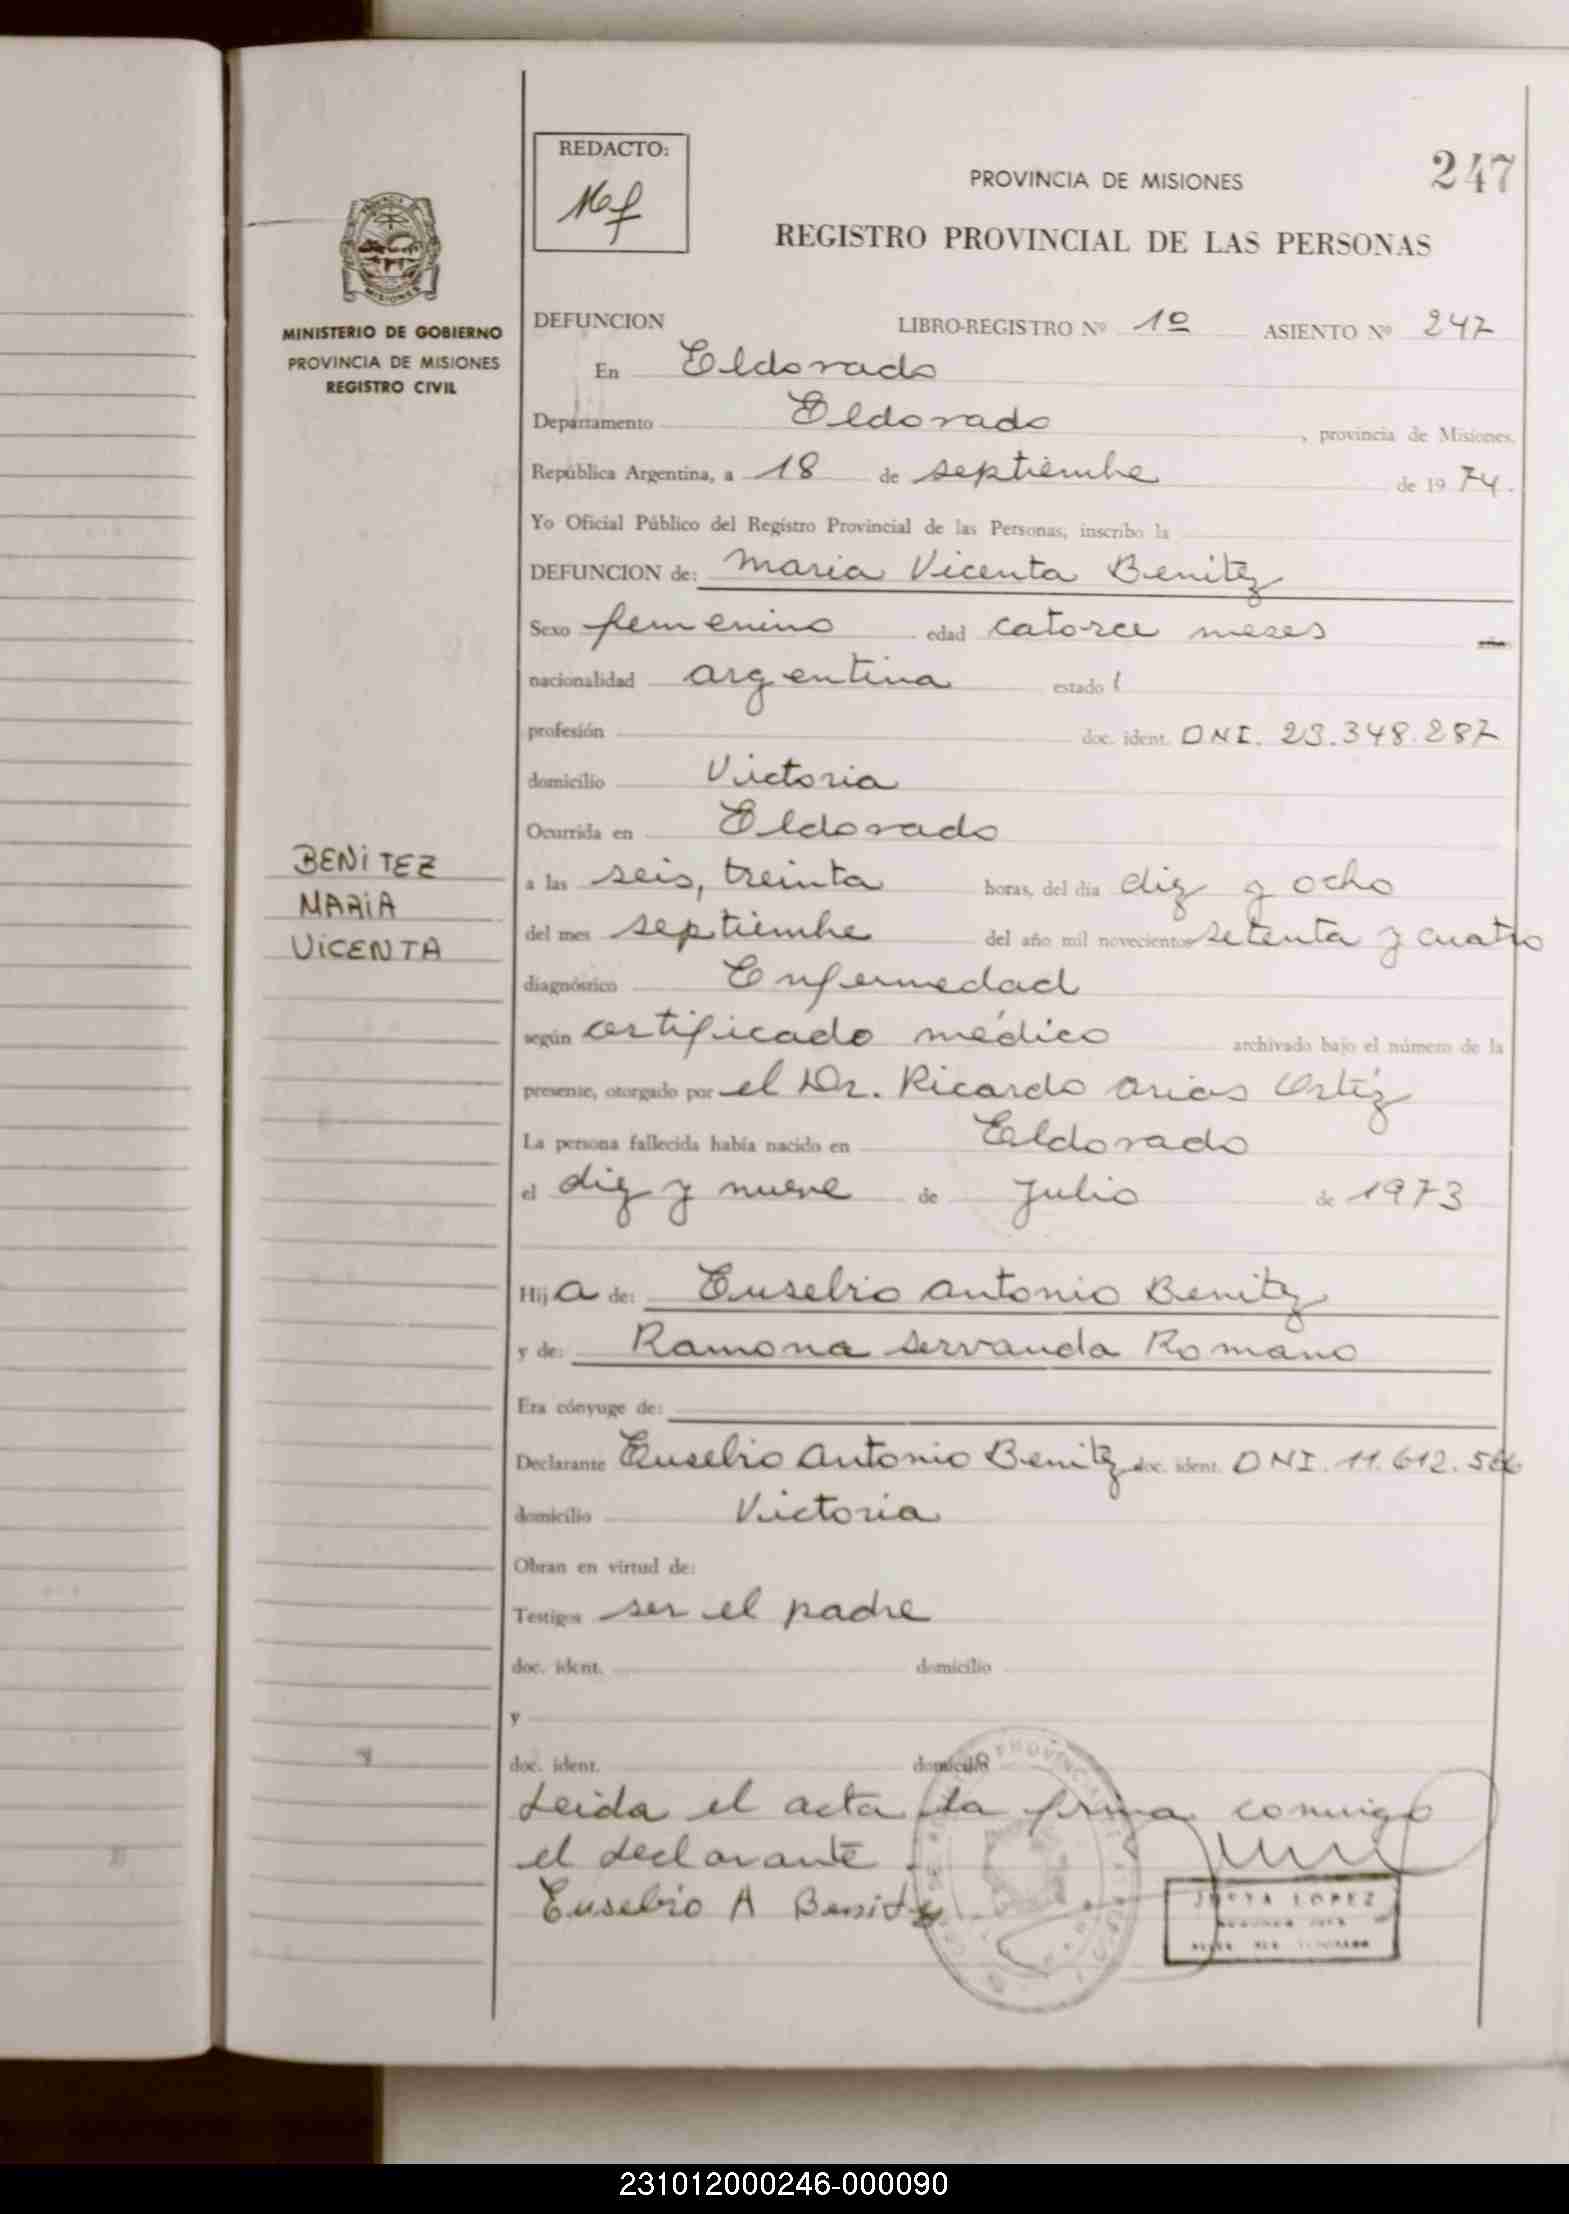 REDACTO:
PROVINCIA DE MISIONES
247
REGISTRO PROVINCIAL DE LAS PERSONAS
MISIONES
MINISTERIO DE GOBIERNO
PROVINCIA DE MISIONES
REGISTRO CIVIL
DEFUNCION LIBRO-REGISTRO Nº 1º ASIENTO Nº 247
En Eldorado
Departamento Eldorado, provincia de Misiones,
República Argentina, a 18 de septiembre de 1974.
Yo Oficial Público del Registro Provincial de las Personas, inscribo la
DEFUNCION de: Maria Vicenta Benitez
Sexo femenino edad catorce meses
nacionalidad argentina estado
profesión doc. ident. DNI. 23.348.287
domicilio Victoria
Ocurrida en Eldorado
BENITEZ
MARIA
VICENTA
a las seis, treinta horas, del día diez y ocho
del mes septiembre del año mil novecientos setenta y cuatro
diagnóstico Enfermedad
según certificado médico archivado bajo el número de la
presente, otorgado por el Dr. Ricardo Arias Ortíz
La persona fallecida había nacido en Eldorado
el diez y nueve de Julio de 1973
Hija de: Eusebio Antonio Benitez
y de: Ramona Servanda Romano
Era cónyuge de:
Declarante Eusebio Antonio Benitez doc. ident. DNI. 11.612.566
domicilio Victoria
Obran en virtud de:
Testigos ser el padre
doc. ident. domicilio
y
doc. ident. domicilio
Leida el acta la firma conmigo
el declarante.
Eusebio A Benitez
LOPEZ
231012000246-000090